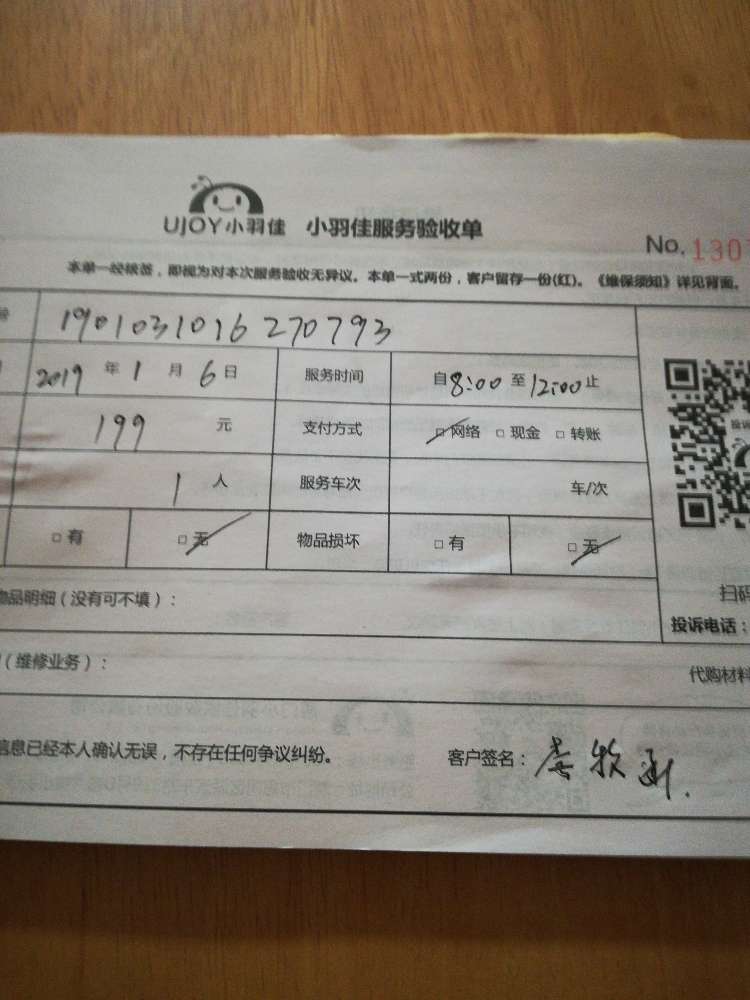 UJOY小羽佳 小羽佳服务验收单
No. 130
本单一经核签，即视为对本次服务验收无异议。本单一式两份，客户留存一份(红)。《维保须知》详见背面。
号 1901031016270793
2019 年 1 月 6 日 服务时间 自 8:00 至 12:00 止
199 元 支付方式 □ 网络 □ 现金 □ 转账
1 人 服务车次 车/次
□ 有 □ 无 物品损坏 □ 有 □ 无
物品明细（没有可不填）：
扫码
投诉电话：
（维修业务）：
代购材料
信息已经本人确认无误，不存在任何争议纠纷。
客户签名：